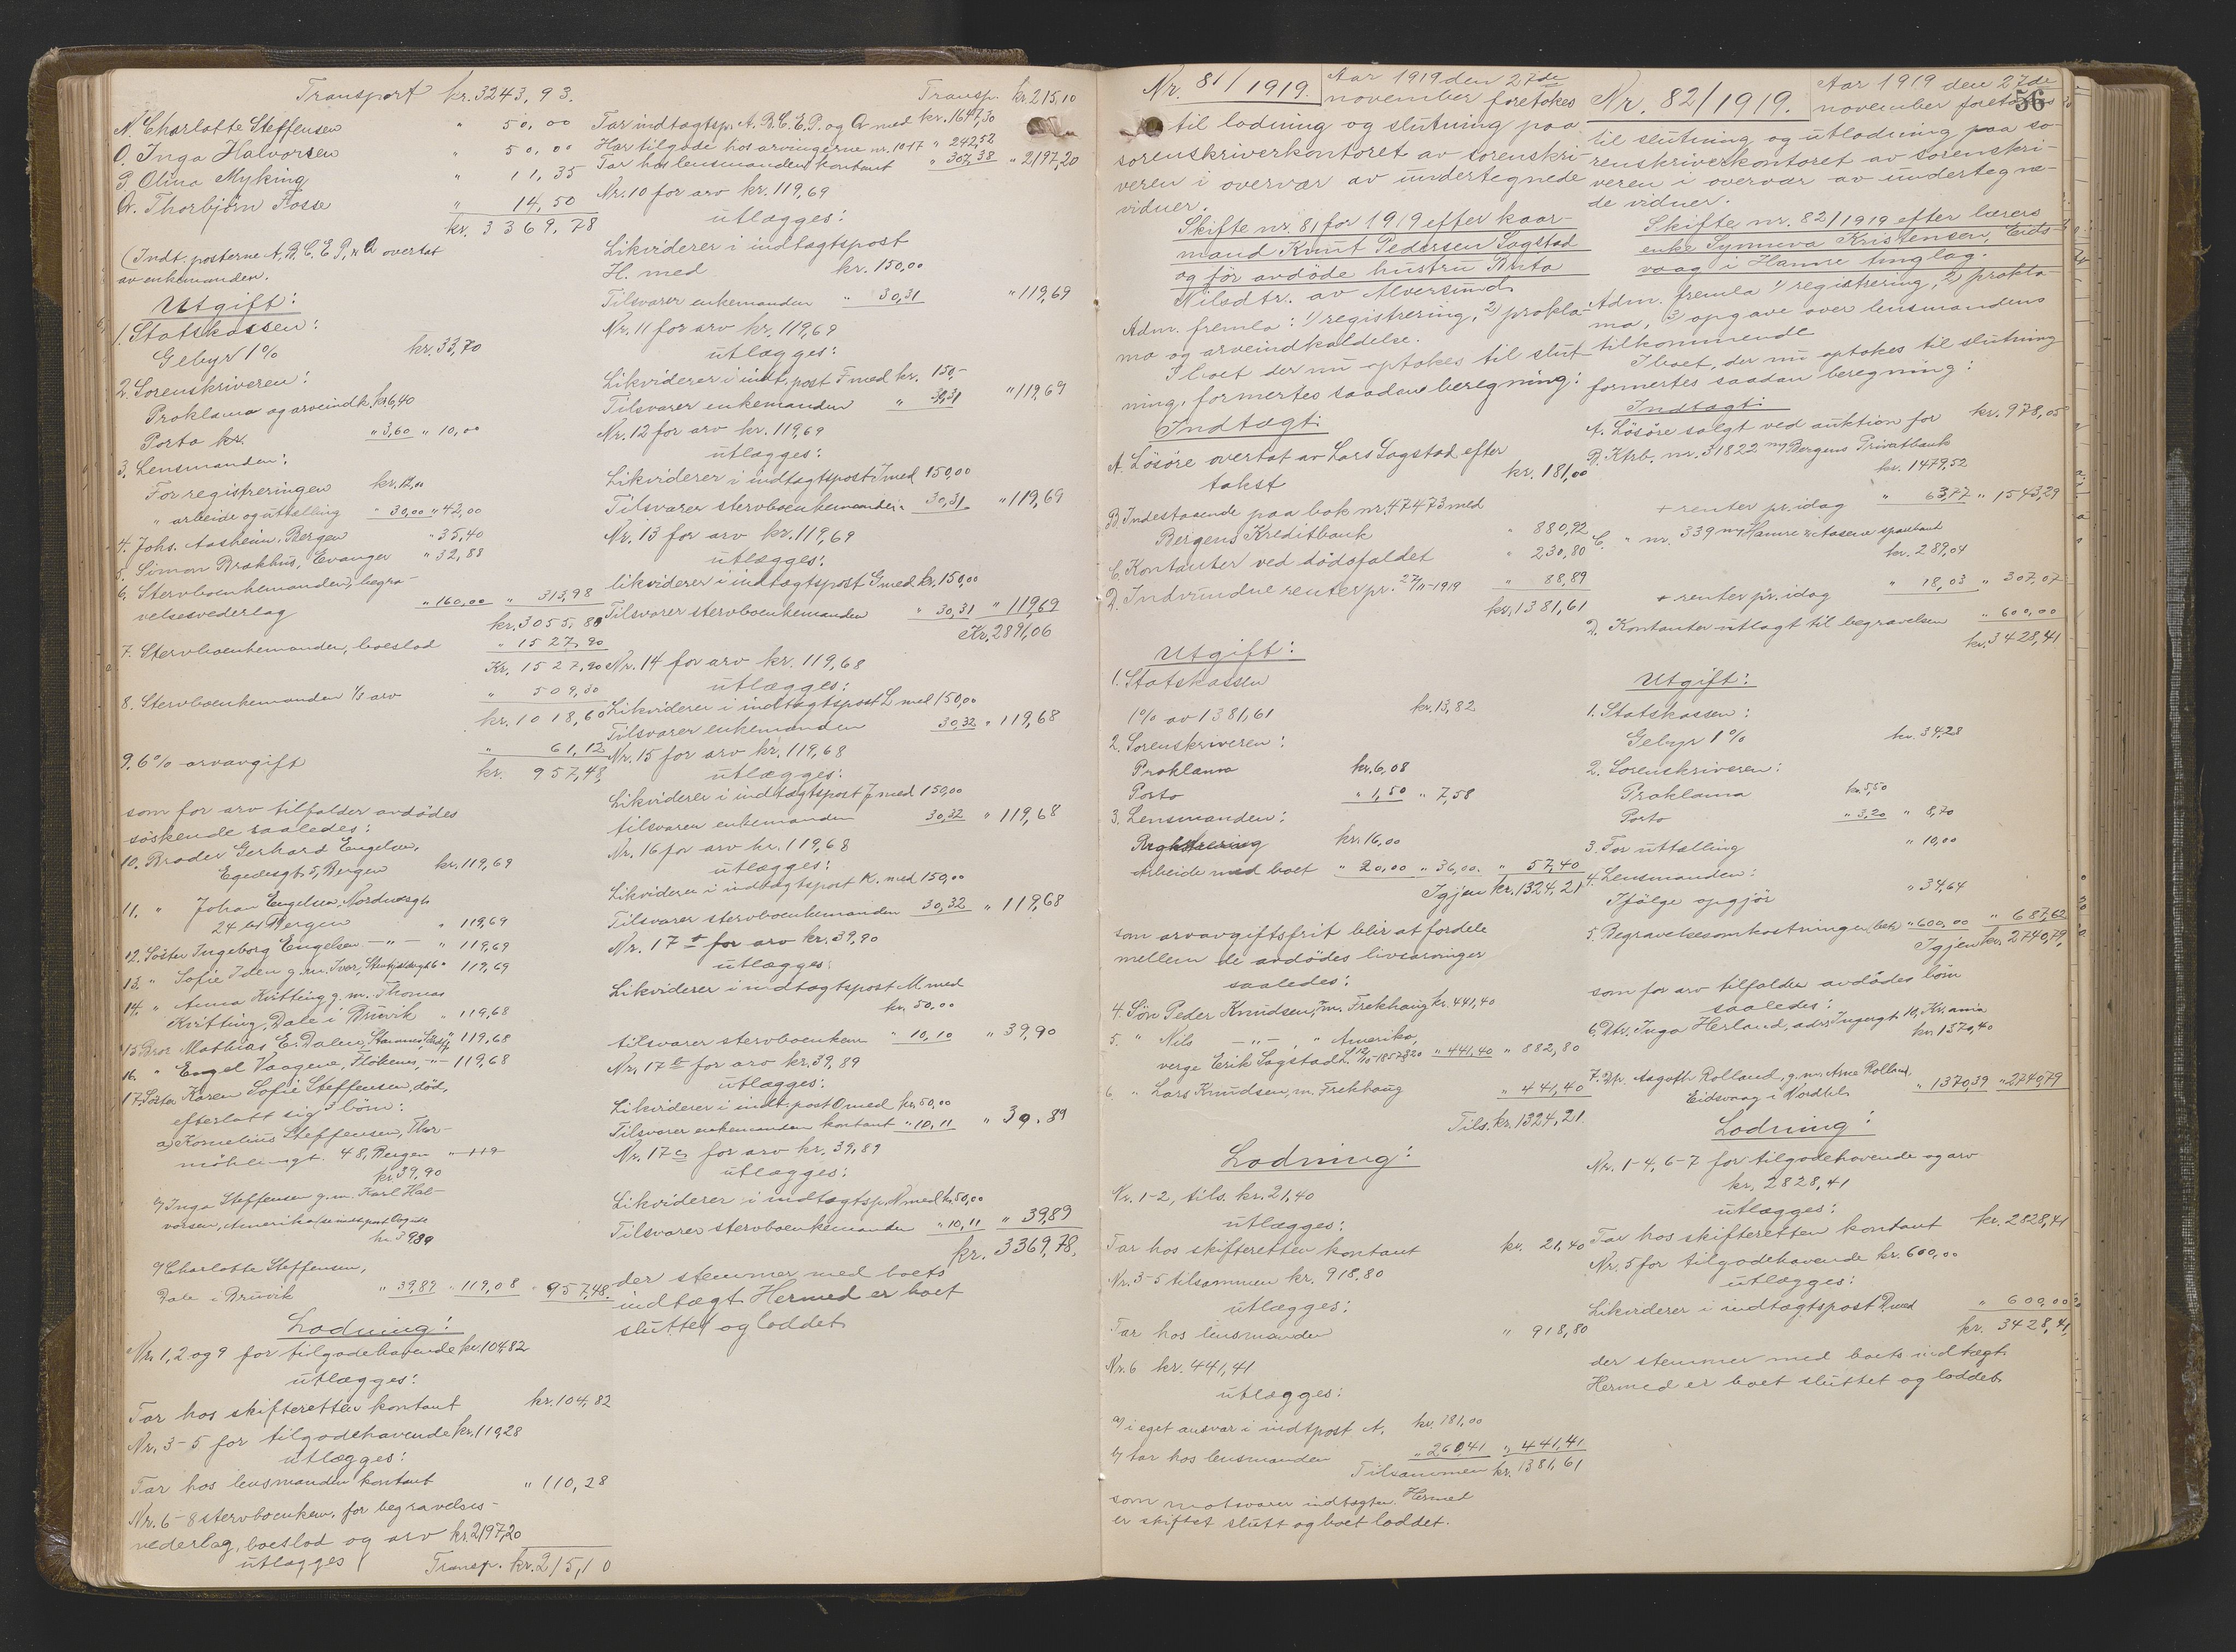 Transport kr. 3243,93.
N. Charlotte Steffensen " 50,00
O. Inga Halvorsen " 50,00
P. Olina Myking " 11,35
Q. Thorbjörn Fosse " 14,50
kr. 3369,78
(Indt. posterne A, B, C, E, P, & Q overtat
av enkemanden.
Utgift:
1. Statskassen:
Gebyr 1% kr. 33,70
2. Sorenskriveren:
Proklama og arveindk. kr. 6,40
Porto kr. " 3,60 " 10,00
3. Lensmanden:
For registreringen kr. 12,00
" arbeide og uttælling " 30,00 " 42,00
4. Johs. Aasheim, Bergen " 35,40
5. Simon Brækhus, Evanger " 32,88
6. Stervboenkemanden, begra-
velsesvederlag " 160,00 " 313,98
kr. 3055,80
7. Stervboenkemanden, boeslod " 1527,90
Kr. 1527,90
8. Stervboenkemanden 1/3 arv " 509,30
kr. 1018,60
9. 6% arvavgift " 61,12
kr. 957,48
som for arv tilfalder avdödes
söskende saaledes:
10. Broder Gerhard Engelsen,
Egedesgt. 5, Bergen kr. 119,69
11. " Johan Engelsen, Nordnæsgt.
24 Bergen " 119,69
12. Söster Ingeborg Engelsen — " — " 119,69
13. " Sofie Iden g. m. Iver, " 119,69
14. " Anna Kvitting g. m. Thomas
Kvitting, Dale i Bruvik " 119,68
15. Bror Mathias E. Dalen, " 119,68
16. " Engel Vaagene, — " — 119,68
17. Söster Karen Sofie Steffensen, död,
efterlatt sig 3 börn:
a) Kornelius Steffensen, Thor-
möhlensgt. 48, Bergen " 119
kr. 39,90
b) Inga Steffensen g. m. Karl Hal-
vorsen, Amerika
kr. 39,89
c) Charlotte Steffensen,
Dale i Bruvik " 39,89 " 119,08 " 957,48.
Lodning:
Nr. 1, 2 og 9 for tilgodehavende kr. 104,82
utlægges:
Tar hos skifteretten kontant kr. 104,82
Nr. 3-5 for tilgodehavende kr. 110,28
utlægges:
Tar hos lensmanden kontant " 110,28
Nr. 6-8 stervboenkem. for begravelses-
vederlag, boeslod og arv kr. 2197,20
utlægges
Transp. kr. 215,10
Transp. kr. 215,10
Tar indtægtsp. A. B. C. E. P. og Q med kr. 1647,30
Har tilgode hos arvingerne nr. 10-17 " 242,52
Tar hos lensmanden kontant " 307,38 " 2197,20
Nr. 10 for arv kr. 119,69
utlægges:
Likviderer i indtægtspost
H. med kr. 150,00
Tilsvarer enkemanden " 30,31 " 119,69
Nr. 11 for arv kr. 119,69
utlægges:
Likviderer i indt. post F med kr. 150,-
Tilsvarer enkemanden " 30,31 " 119,69
Nr. 12 for arv kr. 119,69
utlægges:
Likviderer i indtægtspost I med 150,00
Tilsvarer stervboenkemanden " 30,31 " 119,69
Nr. 13 for arv kr. 119,69
utlægges:
likviderer i indtægtspost G med kr. 150,00
Tilsvarer stervboenkemanden " 30,31 " 119,69
Kr. 2891,06
Nr. 14 for arv kr. 119,68
utlægges:
Likviderer i indtægtspost L med 150,00
Tilsvarer enkemanden 30,32 " 119,68
Nr. 15 for arv kr. 119,68
utlægges:
Likviderer i indtægtspost J med 150,00
tilsvarer enkemanden 30,32 " 119,68
Nr. 16 for arv kr. 119,68
utlægges:
Likviderer i indtægtspost K. med 150,00
Tilsvarer stervboenkemanden 30,32 " 119,68
Nr. 17 a for arv kr. 39,90
utlægges:
Likviderer i indtægtspost M. med
kr. 50,00
tilsvarer stervboenkem " 10,10 " 39,90
Nr. 17 b for arv kr. 39,89
utlægges:
Likviderer i indt. post O med kr. 50,00
Tilsvarer enkemanden kontant " 10,11 " 39,89
Nr. 17 c for arv kr. 39,89
utlægges:
Likviderer i indtægtsp. N med kr. 50,00
Tilsvarer stervboenkemanden " 10,11 " 39,89
kr. 3369,78.
der stemmer med boets
indtægt. Hermed er boet
sluttet og loddet.
Nr. 81/1919. Aar 1919 den 27de
november foretokes
til lodning og slutning paa
sorenskriverkontoret av sorenskri-
veren i overvær av undertegnede
vidner.
Skifte nr. 81 for 1919 efter kaar-
mand Knut Pedersen Sagstad
og för avdöde hustru Brita
Nilsdtr. av Alversund.
Adm. fremla: 1) registrering, 2) prokla-
ma og arveindkaldelse.
I boet der nu optokes til slut-
ning, formertes saadan beregning:
Indtægt:
A. Lösöre overtat av Lars Sagstad efter
takst kr. 181,00
B. Indestaaende paa bok nr. 47473 med
Bergens Kreditbank " 880,92
C. Kontanter ved dödsfaldet " 230,80
D. Indvundne renter pr. 27/11-1919 " 88,89
kr. 1381,61
Utgift:
1. Statskassen
1% av 1381,61 kr. 13,82
2. Sorenskriveren:
Proklama kr. 6,08
Porto " 1,50 " 7,58
3. Lensmanden:
Registrering kr. 16,00
Arbeide med boet " 20,00 " 36,00. " 57,40
Igjen kr. 1324,21
som arvavgiftsfrit blir at fordele
mellem de avdödes livsarvinger
saaledes:
4. Sön Peder Knudsen, m. Frekhaug kr. 441,40
5. " Nils — " — , " Amerika,
verge Erik Sagstad " 441,40 " 882,80
6. " Lars Knudsen, m. Frekhaug " 441,40
Tils. kr. 1324,21.
Lodning:
Nr. 1-2, tils. kr. 21,40
utlægges:
Tar hos skifteretten kontant kr. 21,40
Nr. 3-5 tilsammen kr. 918,80
utlægges:
Tar hos lensmanden " 918,80
Nr. 6 kr. 441,41
utlægges:
a) i eget ansvar i indtpost A. kr. 181,00
b) tar hos lensmanden " 260,41 " 441,41
Tilsammen kr. 1381,61
som motsvarer indtægten. Hermed
er skiftet slutt og boet loddet.
56
Nr. 82/1919. Aar 1919 den 27de
november foretokes
til slutning og utlodning paa so-
renskriverkontoret av sorenskri-
veren i overvær av undertegne-
de vidner.
Skifte nr. 82/1919 efter lærers
enke Synneva Kristensen, Eids-
vaag i Hamre tinglag.
Adm. fremla 1) registrering, 2) prokla-
ma, 3) opgave over lensmandens
tilkommende
I boet, der nu optokes til slutning
formertes saadan beregning:
Indtægt:
A. Lösöre solgt ved auktion for kr. 978,05
B. Ktrb. nr. 31822 m/ Bergens Privatbank
kr. 1479,52
+ renter pr. idag " 63,77 " 1543,29
C. " nr. 339 m/ Hamre & Aasene sparebank
kr. 289,04
+ renter pr. idag " 18,03 " 307,07
D. Kontanter utlagt til begravelsen " 600,00
kr. 3428,41
Utgift:
1. Statskassen:
Gebyr 1% kr. 34,28
2. Sorenskriveren:
Proklama kr. 5,50
Porto " 3,20 " 8,70
3. For uttælling " 10,00
4. Lensmanden:
Ifölge opgjör " 34,64
5. Begravelsesomkostninger, " 600,00 " 687,62
Igjen kr. 2740,79,
som for arv tilfalder avdödes börn
saaledes:
6. Dtr. Inga Herland, adr. 10, Kr.ania
kr. 1370,40
7. Dtr. Aagoth Rolland, g. m. Arne Rolland,
Eidsvaag i " 1370,39 " 2740,79
Lodning:
Nr. 1-4, 6-7 for tilgodehavende og arv
kr. 2828,41
utlægges:
Tar hos skifteretten kontant kr. 2828,41
Nr. 5 for tilgodehavende kr. 600,00
utlægges:
Likviderer i indtægtspost D. med " 600,00
kr. 3428,41.
der stemmer med boets indtægt.
Hermed er boet sluttet og loddet.